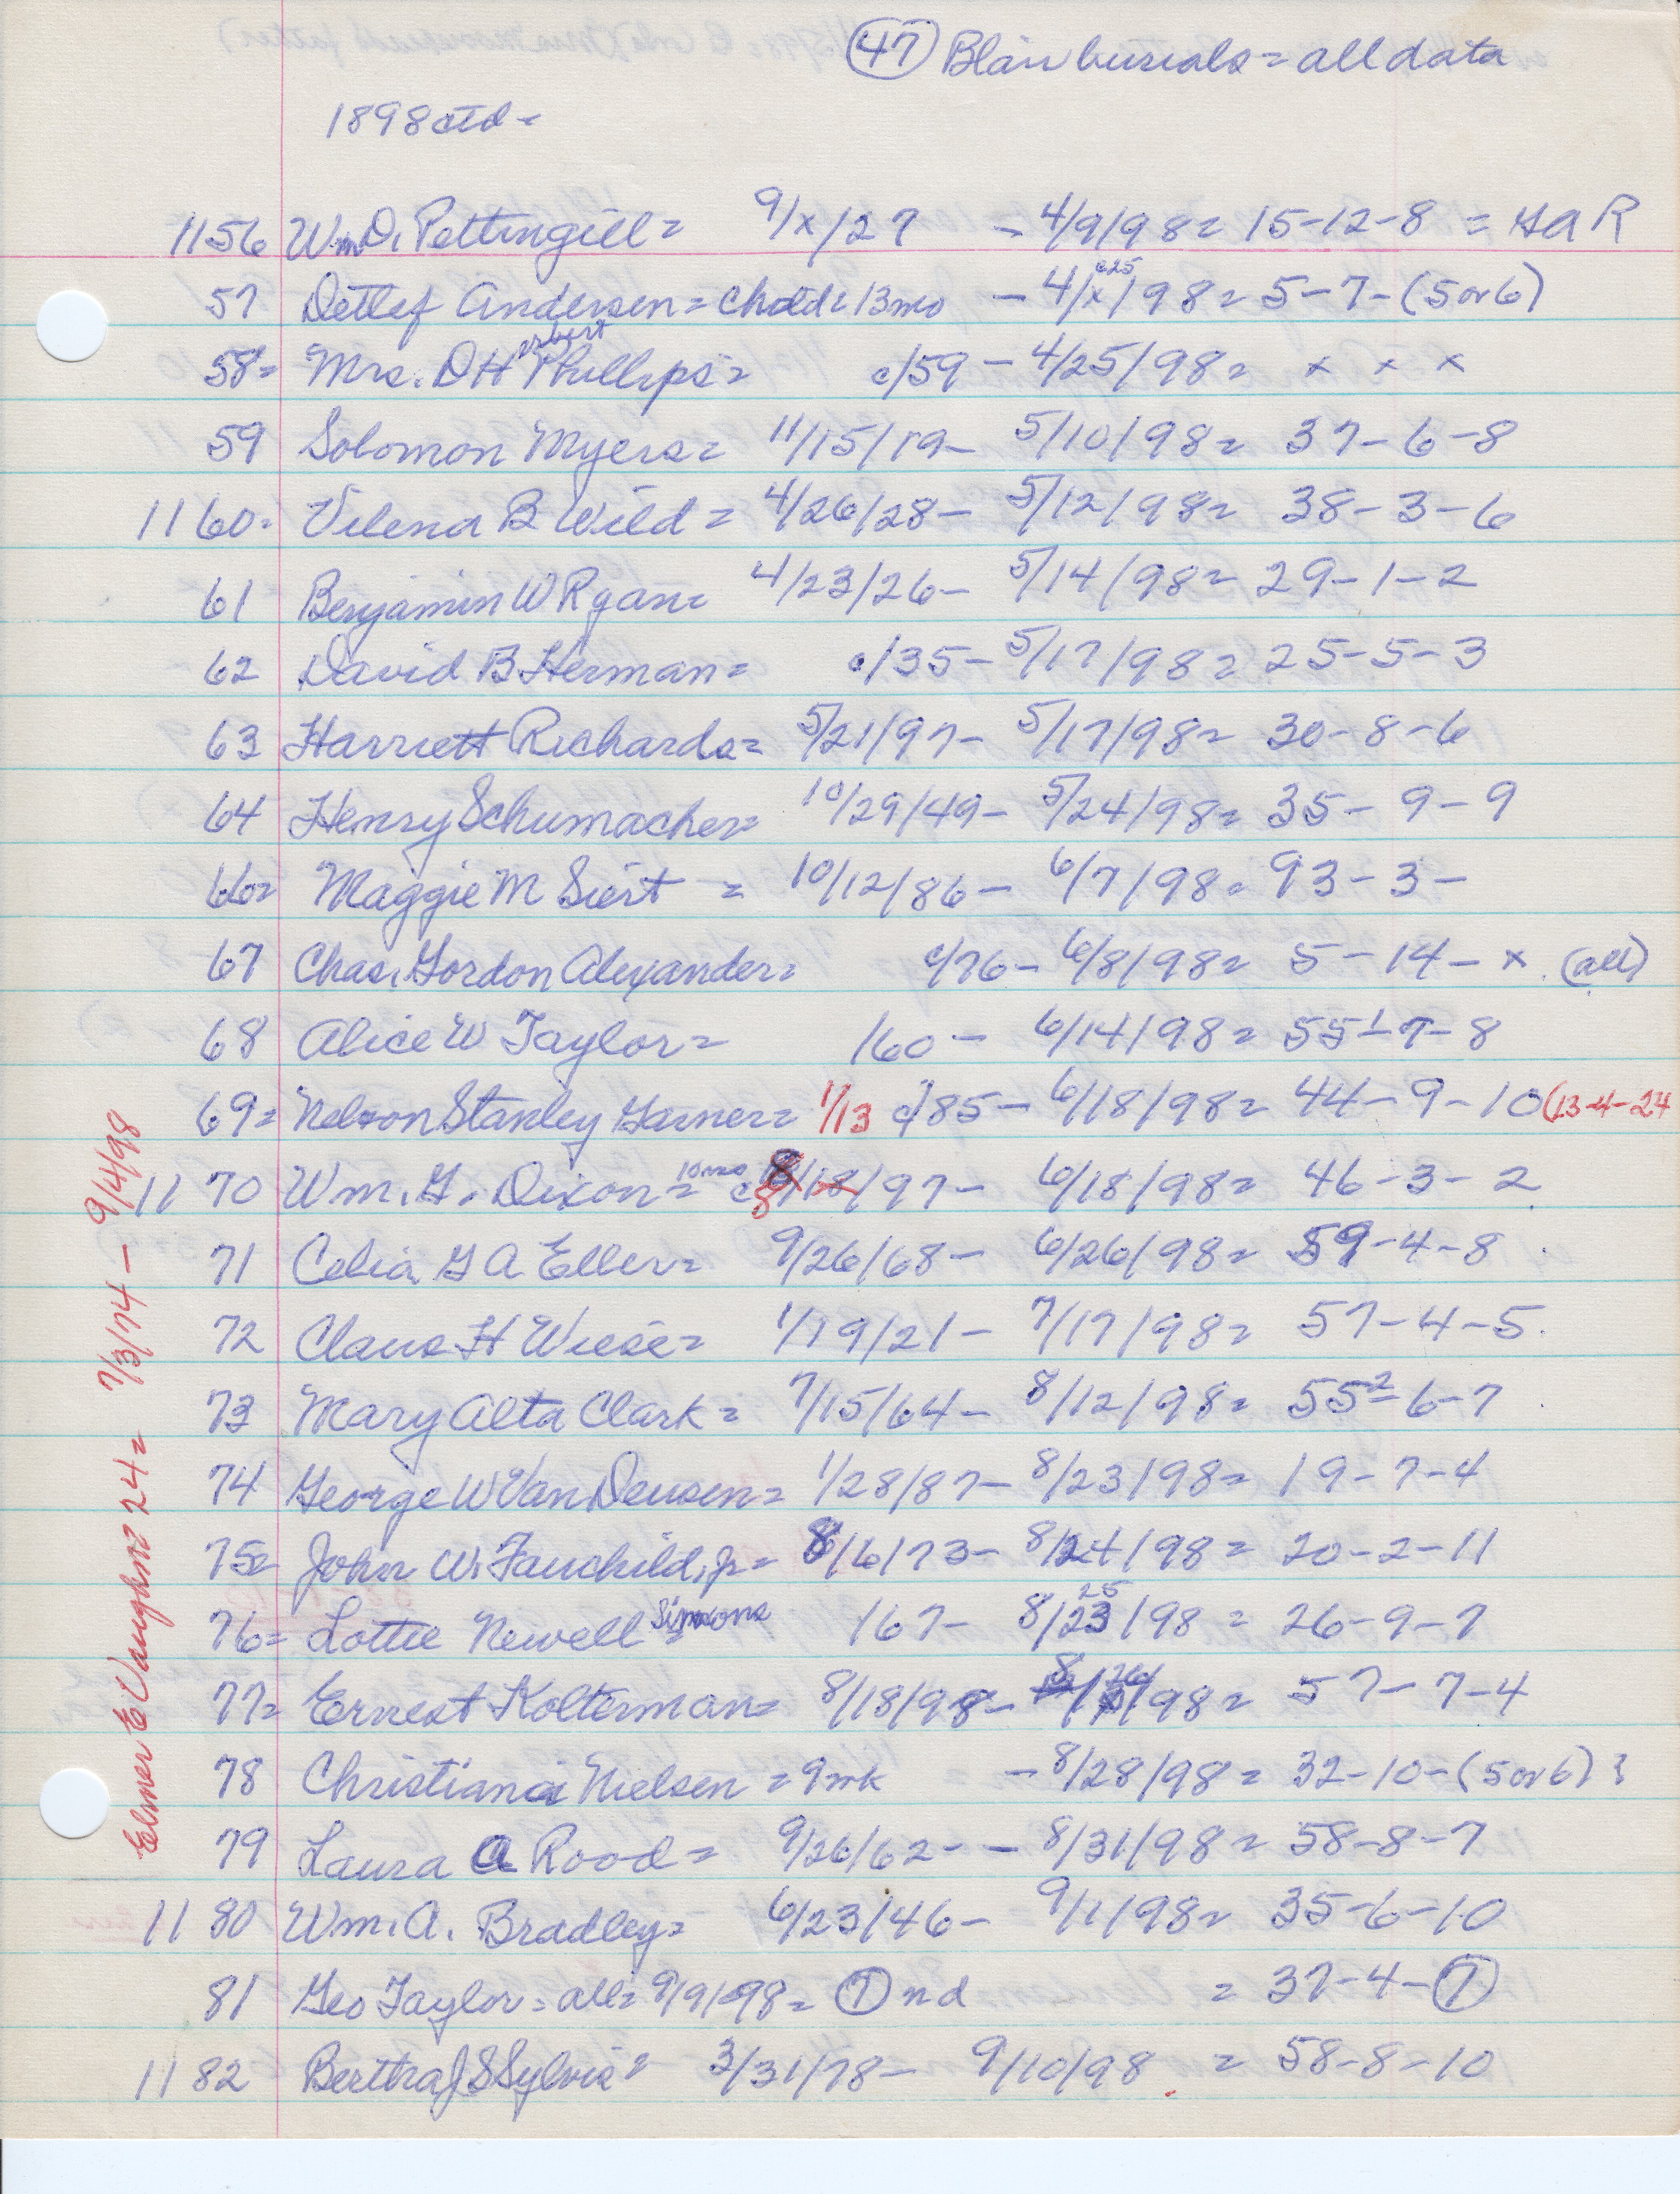 (47) Blair burials = all data
1898 ctd -
1156 Wm D. Pettingill = 9/x/27 - 4/9/98 = 15-12-8 = GAR
57 Detlef Andersen = child = 13mo - 4/x/98 = 5-7-(5 or 6) c25
58= Mrs. DH Phillips = c/59 - 4/25/98 = x x x
59 Solomon Myers = 11/15/19 - 5/10/98 = 37-6-8
1160. Vilena B Wild = 4/26/28 - 5/12/98 = 38-3-6
61 Benjamin W Ryan = 4/23/26 - 5/14/98 = 29-1-2
62 David B Herman = c/35 - 5/17/98 = 25-5-3
63 Harriett Richards = 5/21/97 - 5/17/98 = 30-8-6
64 Henry Schumacher = 10/29/49 - 5/24/98 = 35-9-9
66= Maggie M Siert = 10/12/86 - 6/7/98 = 93-3-
67 Chas. Gordon Alexander = c/76 - 6/8/98 = 5-14-x (all)
68 Alice W Taylor = /60 - 6/14/98 = 55¹-7-8
69= Nelson Stanley Garner = 1/13 c/85 - 6/18/98 = 44-9-10 (13-4-24
1170 Wm. G. Dixon = 10mo c 8/18/97 - 6/18/98 = 46-3-2
71 Celia G A Eller = 9/26/68 - 6/26/98 = 59-4-8
72 Claus H Wiese = 1/19/21 - 7/17/98 = 57-4-5
73 Mary Alta Clark = 7/15/64 - 8/12/98 = 55²-6-7
74 George W Van Deusen = 1/28/87 - 8/23/98 = 19-7-4
75= John W. Fauchild, Jr = 8/6/73 - 8/24/98 = 20-2-11
76= Lottie Newell Simmons = /67 - 8/23/98 = 26-9-7 25
77= Ernest Kolterman = 8/18/98 - 8/26/98 = 57-7-4
78 Christiana Nielsen = 9 wk - 8/28/98 = 32-10-(5 or 6)?
79 Laura A Rood = 9/26/62 - - 8/31/98 = 58-8-7
1180 Wm. A. Bradley = 6/23/46 - 9/1/98 = 35-6-10
81 Geo Taylor = all = 9/9/98 = (7) nd = 37-4-(7)
1182 Bertha J S Sylvis = 3/31/78 - 9/10/98 = 58-8-10
Elmer E Vaughn = 24 = 7/3/74 - 9/4/98